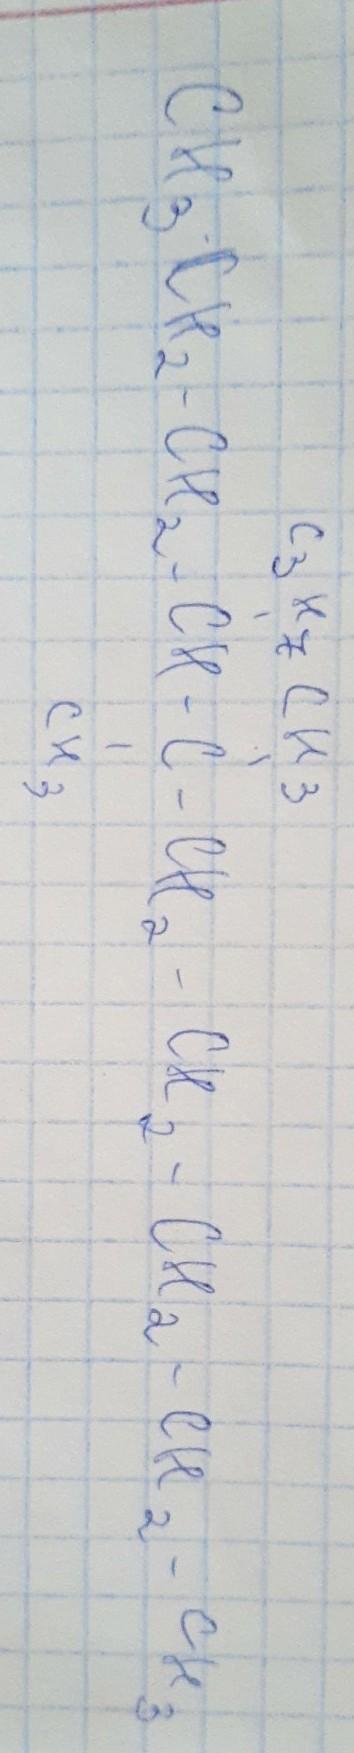 C₃H₇ CH₃
CH₃CH₂-CH₂-CH-C-CH₂-CH₂-CH₂-CH₂-CH₃
CH₃